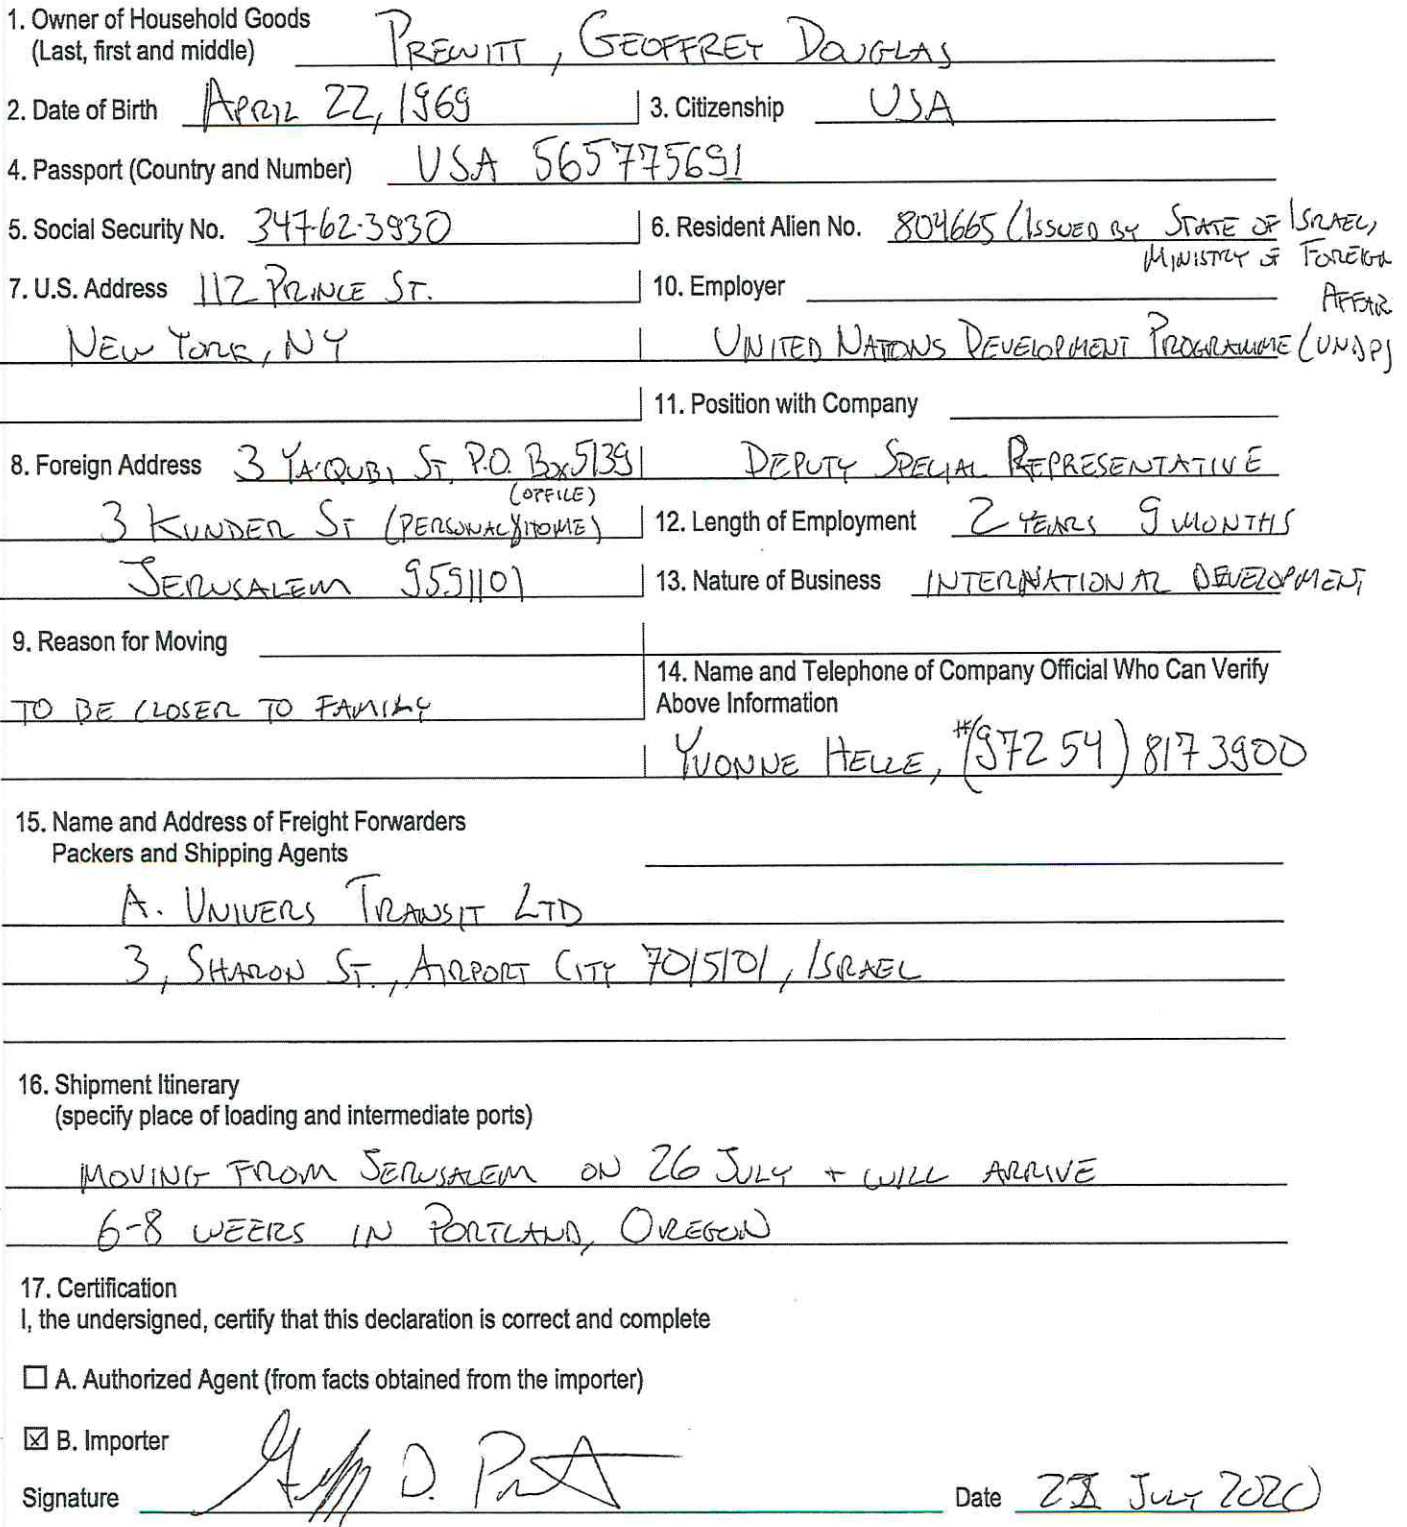 1. Owner of Household Goods
(Last, first and middle) PREWITT, GEOFFREY DOUGLAS
2. Date of Birth APRIL 22, 1969 3. Citizenship USA
4. Passport (Country and Number) USA 565775691
5. Social Security No. 347-62-3930 6. Resident Alien No. 804665 (ISSUED BY STATE OF ISRAEL,
MINISTRY OF FOREIGN
AFFAIR
7. U.S. Address 112 PRINCE ST. 10. Employer
NEW YORK, NY UNITED NATIONS DEVELOPMENT PROGRAMME (UNDP)
11. Position with Company
8. Foreign Address 3 YA'QUBI ST, P.O. Box 5139 DEPUTY SPECIAL REPRESENTATIVE
(OFFICE)
3 KUNDER ST (PERSONAL/HOME) 12. Length of Employment 2 YEARS 9 MONTHS
JERUSALEM 9591101 13. Nature of Business INTERNATIONAL DEVELOPMENT
9. Reason for Moving
14. Name and Telephone of Company Official Who Can Verify
Above Information
TO BE CLOSER TO FAMILY
YVONNE HELLE, #(972 54) 8173900
15. Name and Address of Freight Forwarders
Packers and Shipping Agents
A. UNIVERS TRANSIT LTD
3, SHARON ST., AIRPORT CITY 7015101, ISRAEL
16. Shipment Itinerary
(specify place of loading and intermediate ports)
MOVING FROM JERUSALEM ON 26 JULY + WILL ARRIVE
6-8 WEEKS IN PORTLAND, OREGON
17. Certification
I, the undersigned, certify that this declaration is correct and complete
☐ A. Authorized Agent (from facts obtained from the importer)
☒ B. Importer
Signature Date JULY 2020